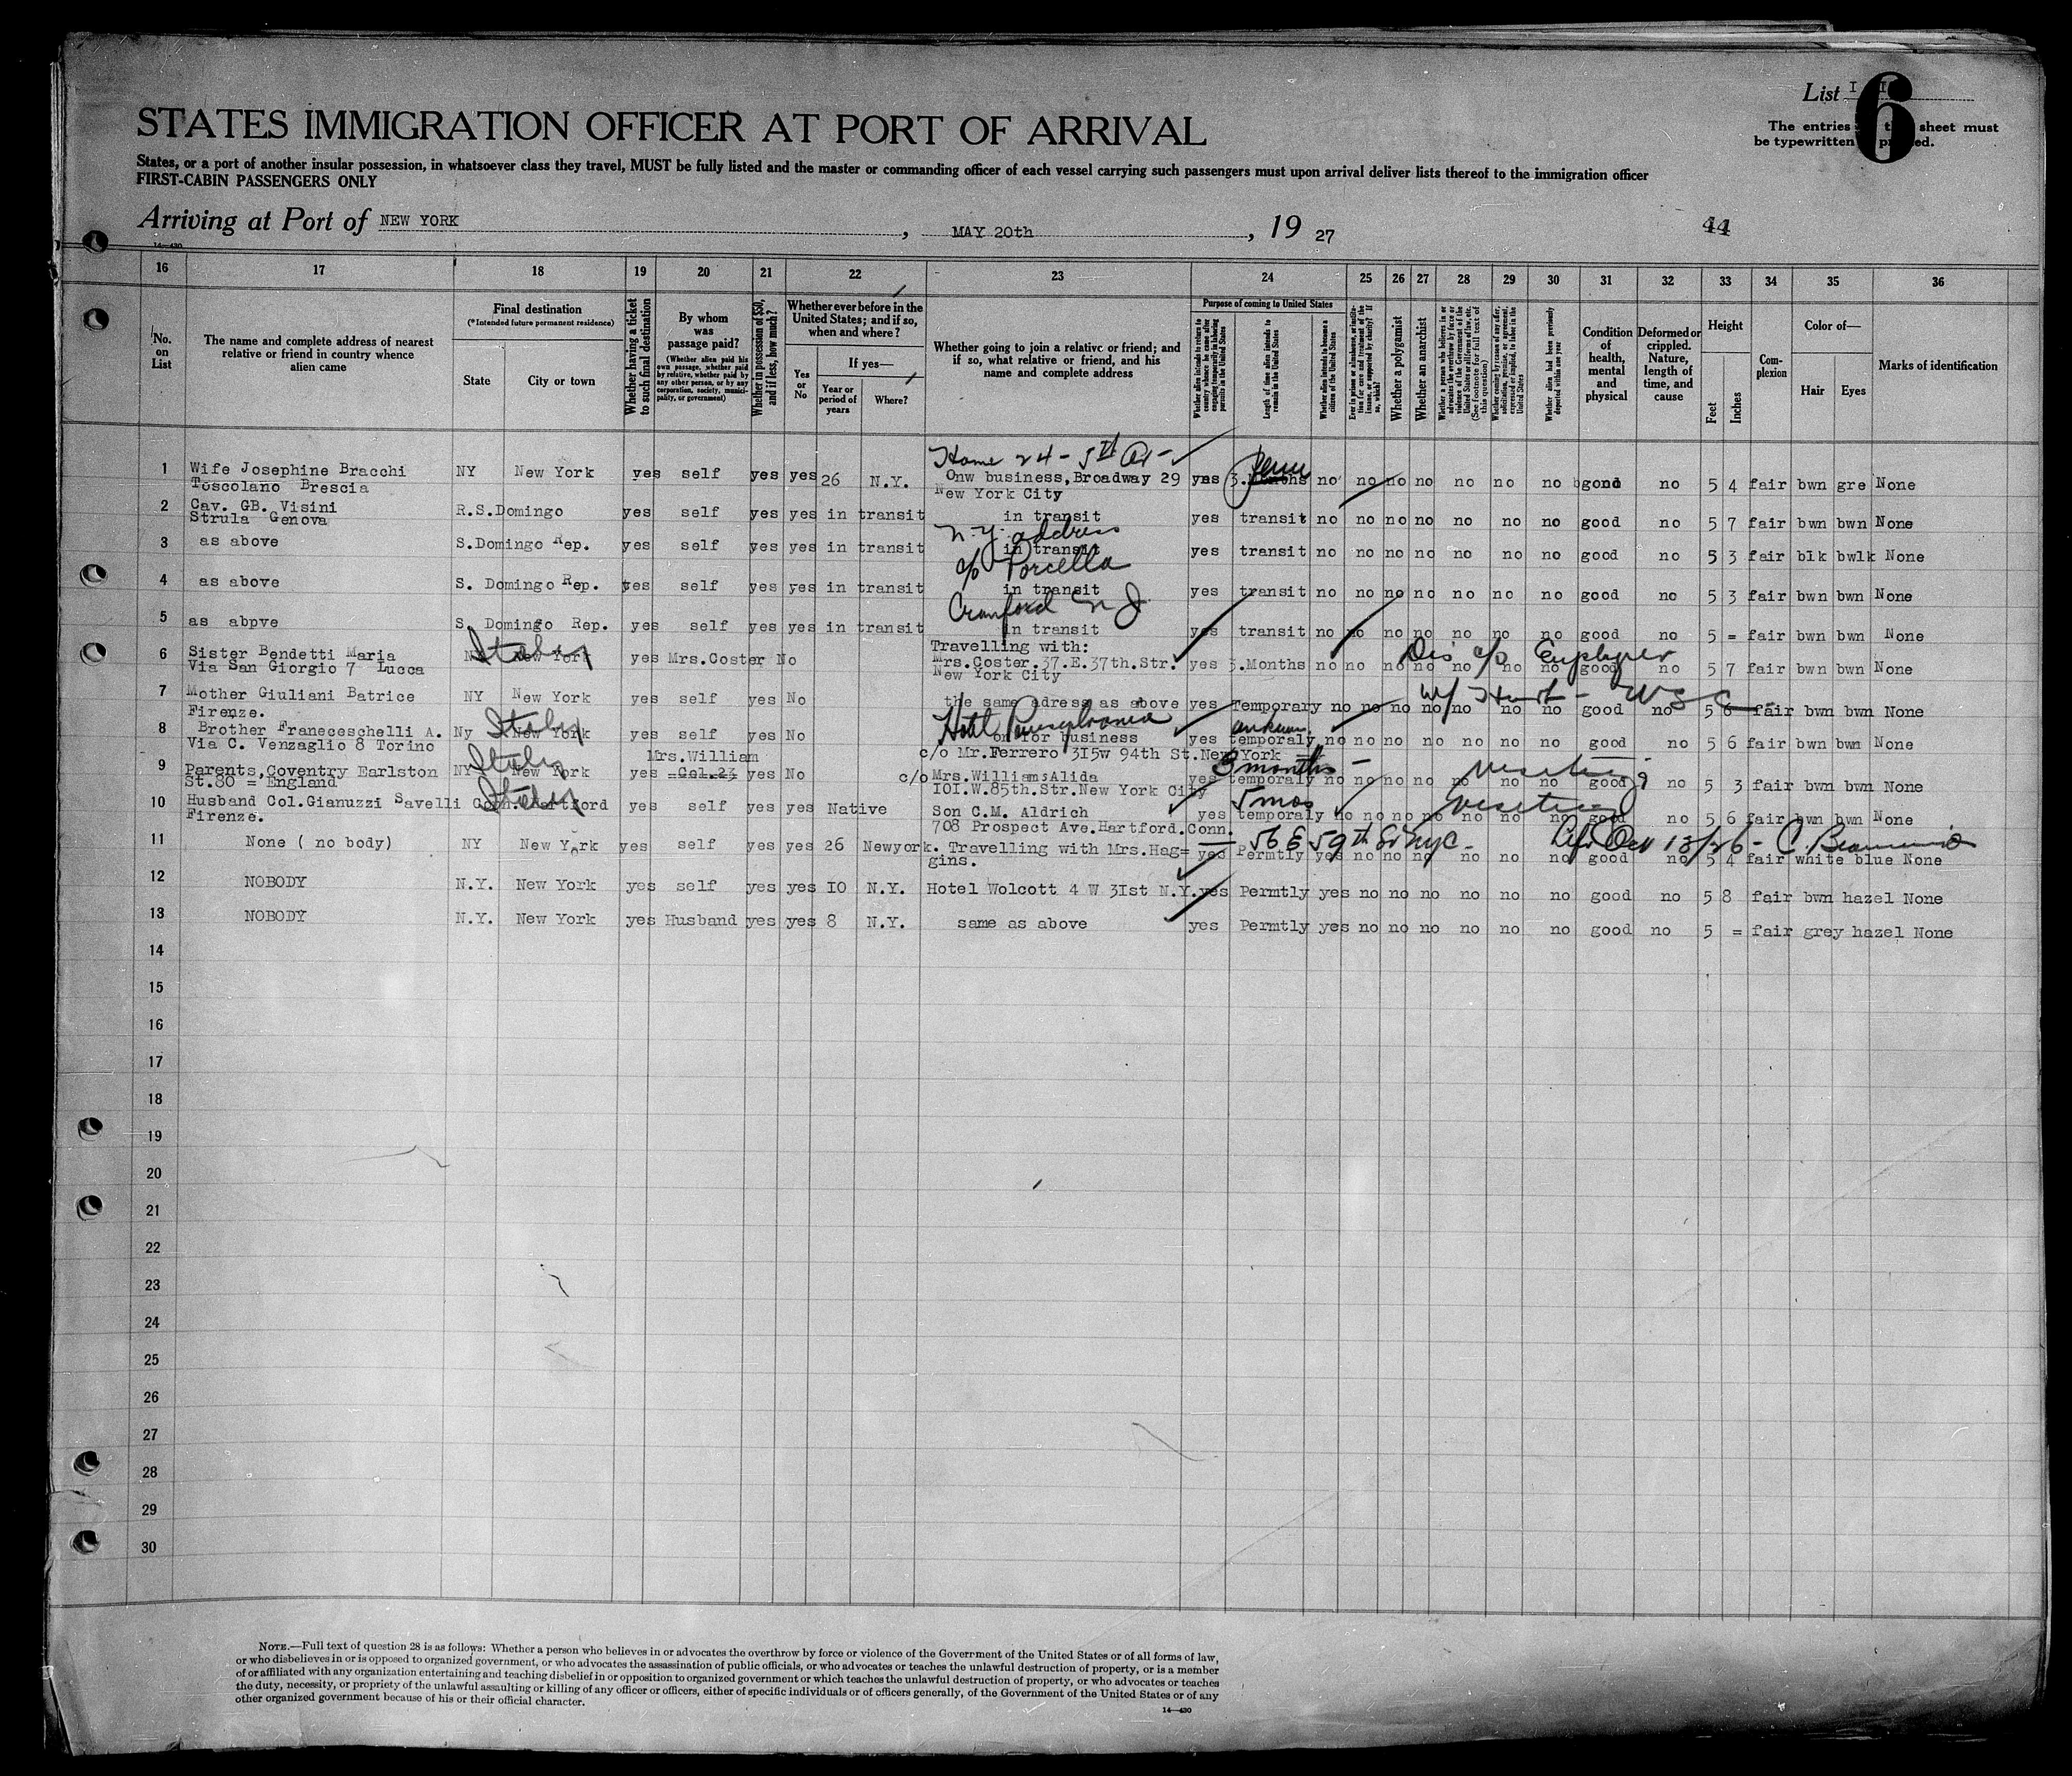 List I I
6
The entries sheet must
be typewritten
STATES IMMIGRATION OFFICER AT PORT OF ARRIVAL
States, or a port of another insular possession, in whatsoever class they travel, MUST be fully listed and the master or commanding officer of each vessel carrying such passengers must upon arrival deliver lists thereof to the immigration officer
FIRST-CABIN PASSENGERS ONLY
Arriving at Port of NEW YORK , MAY 20th , 19 27
44
14—430
16 17 18 19 20 21 22 23 24 25 26 27 28 29 30 31 32 33 34 35 36
No. on List
The name and complete address of nearest relative or friend in country whence alien came
Final destination
(*Intended future permanent residence)
State
City or town
Whether having a ticket to such final destination
By whom was passage paid?
(Whether alien paid his own passage, whether paid by relative, whether paid by any other person, or by any corporation, society, municipality, or government)
Whether in possession of $50, and if less, how much?
Whether ever before in the United States; and if so, when and where?
Yes or No
If yes—
Year or period of years
Where?
Whether going to join a relative or friend; and if so, what relative or friend, and his name and complete address
Purpose of coming to United States
Whether alien intends to return to country whence he came after engaging temporarily in laboring pursuits in the United States
Length of time alien intends to remain in the United States
Whether alien intends to become a citizen of the United States
Ever in prison or almshouse, or institution for care and treatment of the insane, or supported by charity? If so, which?
Whether a polygamist
Whether an anarchist
Whether a person who believes in or advocates the overthrow by force or violence of the Government of the United States or all forms of law, etc. (See footnote for full text of this question)
Whether coming by reason of any offer, solicitation, promise, or agreement, expressed or implied, to labor in the United States
Whether alien had been previously deported within one year
Condition of health, mental and physical
Deformed or crippled. Nature, length of time, and cause
Height
Feet
Inches
Complexion
Color of—
Hair
Eyes
Marks of identification
Home 24 - 5th Av -
1 Wife Josephine Bracchi NY New York yes self yes yes 26 N.Y. Onw business, Broadway 29 yes 3.Months no no no no no no no good no 5 4 fair bwn gre None
Toscolano Brescia New York City
2 Cav. GB. Visini R.S.Domingo yes self yes yes in transit in transit yes transit no no no no no no no good no 5 7 fair bwn bwn None
Strula Genova
N.Y. address
3 as above S.Domingo Rep. yes self yes yes in transit in transit yes transit no no no no no no no good no 5 3 fair blk bwlk None
c/o Porcella
4 as above S. Domingo Rep. yes self yes yes in transit in transit yes transit no no no no no no no good no 5 3 fair bwn bwn None
Cranford N J
5 as abpve S. Domingo Rep. yes self yes yes in transit in transit yes transit no no no no no no no good no 5 = fair bwn bwn None
6 Sister Bendetti Maria NY New York Italy yes Mrs.Coster No Travelling with:
Via San Giorgio 7 Lucca Mrs.Coster.37.E.37th.Str. yes 3.Months no no no no no no no good no 5 7 fair bwn bwn None
New York City
Dis c/o Employer
7 Mother Giuliani Batrice NY New York yes self yes No the same adress as above yes Temporary no no no no no no no good no 5 6 fair bwn bwn None
Firenze.
Hotel Pennsylvania
8 Brother Franeceschelli A. Ny New York Italy yes self yes No on for business yes temporaly no no no no no no no good no 5 6 fair bwn bwn None
Via C. Venzaglio 8 Torino c/o Mr.Ferrero 3I5w 94th St.New York
Mrs.William 3 months -
9 Parents, Coventry Earlston NY New York Italy yes Col.23 yes No c/o Mrs.Williams Alida yes temporaly no no no no no no no good no 5 3 fair bwn bwn None
St.80 = England IOI.W.85th.Str.New York City
visiting
5 mos
10 Husband Col.Gianuzzi Savelli Conn. Hartford Italy yes self yes yes Native Son C.M. Aldrich yes temporaly no no no no no no no good no 5 6 fair bwn bwn None
Firenze. 708 Prospect Ave.Hartford.Conn.
visiting
56 E 59th St NYC - Oct 13/26 -
11 None ( no body) NY New York yes self yes yes 26 Newyork. Travelling with Mrs.Hag= yes Permtly yes no no no no no no good no 5 4 fair white blue None
gins.
12 NOBODY N.Y. New York yes self yes yes IO N.Y. Hotel Wolcott 4 W 3Ist N.Y. yes Permtly yes no no no no no no good no 5 8 fair bwn hazel None
13 NOBODY N.Y. New York yes Husband yes yes 8 N.Y. same as above yes Permtly yes no no no no no no good no 5 = fair grey hazel None
14
15
16
17
18
19
20
21
22
23
24
25
26
27
28
29
30
NOTE.—Full text of question 28 is as follows: Whether a person who believes in or advocates the overthrow by force or violence of the Government of the United States or of all forms of law,
or who disbelieves in or is opposed to organized government, or who advocates the assassination of public officials, or who advocates or teaches the unlawful destruction of property, or is a member
of or affiliated with any organization entertaining and teaching disbelief in or opposition to organized government or which teaches the unlawful destruction of property, or who advocates or teaches
the duty, necessity, or propriety of the unlawful assaulting or killing of any officer or officers, either of specific individuals or of officers generally, of the Government of the United States or of any
other organized government because of his or their official character.
14—430